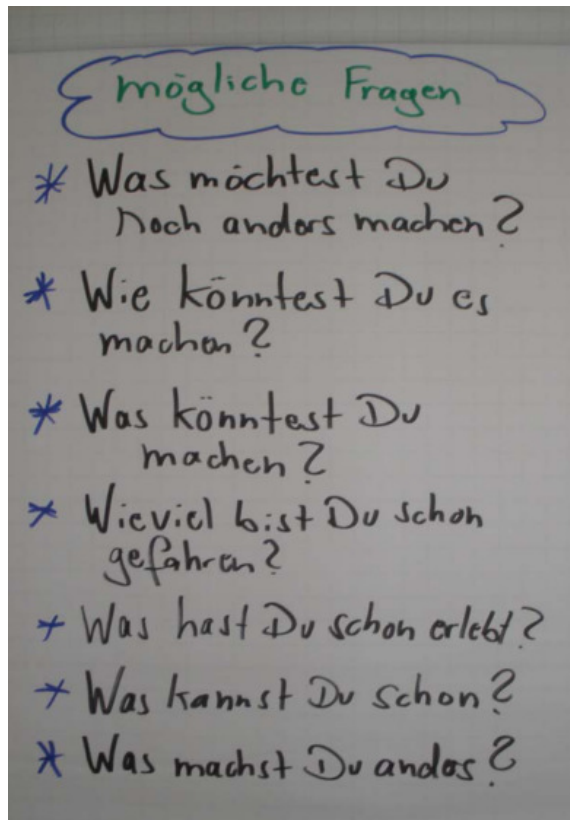 mögliche Fragen
* Was möchtest Du
noch anders machen?
* Wie könntest Du es
machen?
* Was könntest Du
machen?
* Wieviel bist Du schon
gefahren?
* Was hast Du schon erlebt?
* Was kannst Du schon?
* Was machst Du anders?